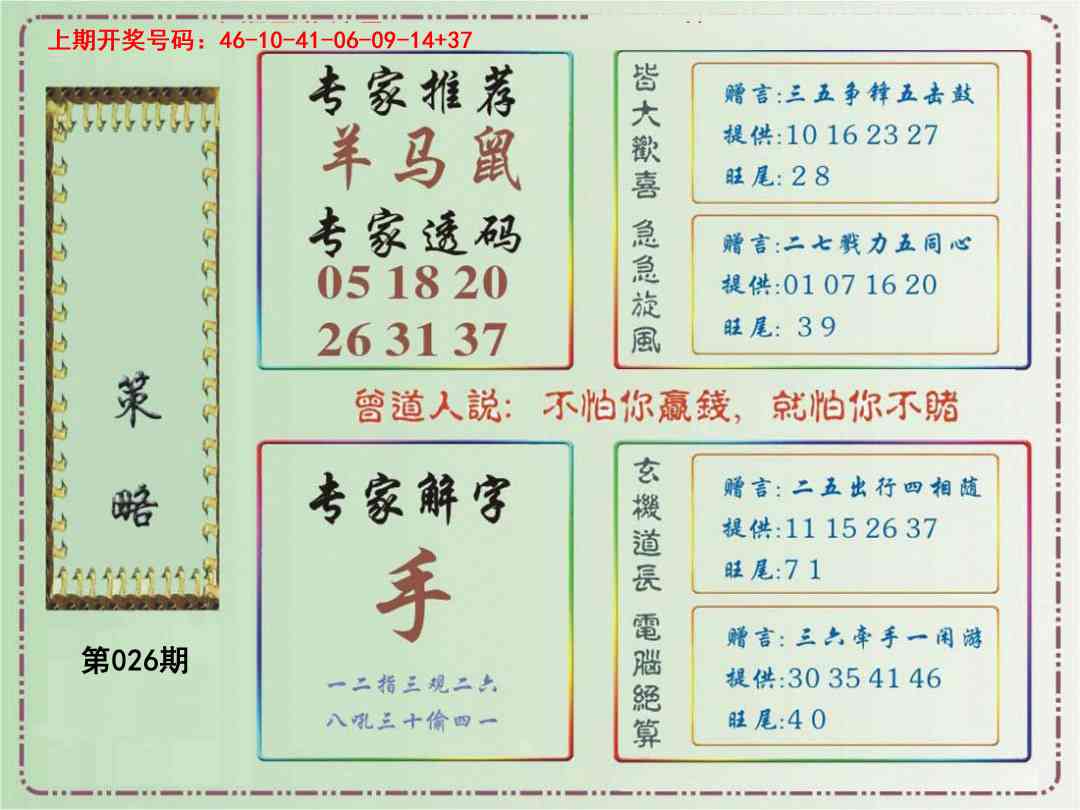 上期开奖号码：46-10-41-06-09-14+37
策
略
第026期
专家推荐
羊马鼠
专家透码
05 18 20
26 31 37
皆大歡喜
赠言:三五争锋五击鼓
提供:10 16 23 27
旺尾: 2 8
急急旋風
赠言:二七戮力五同心
提供:01 07 16 20
旺尾: 3 9
曾道人説: 不怕你贏錢, 就怕你不賭
专家解字
手
一二指三观二六
八吼三十偷四一
玄機道長
赠言: 二五出行四相随
提供:11 15 26 37
旺尾:7 1
電腦絕算
赠言: 三六牵手一闲游
提供:30 35 41 46
旺尾:4 0